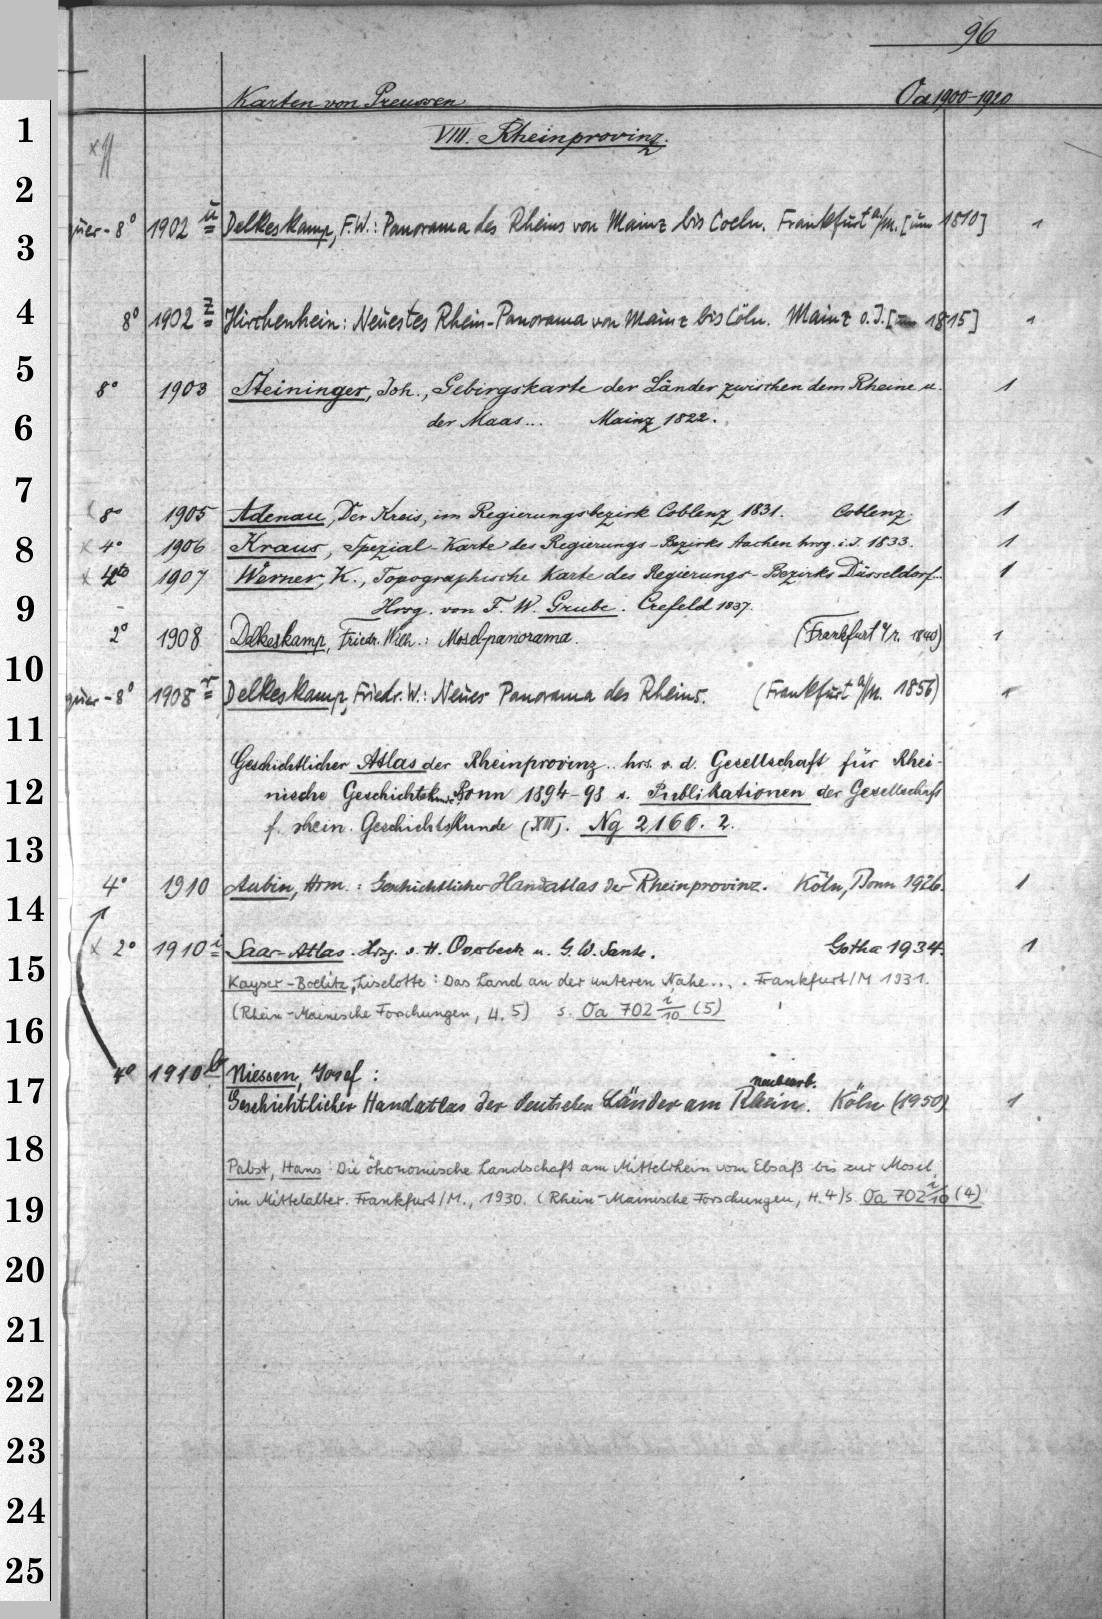 96
Karten von Preussen Oa 1900-1920
VIII. Rheinprovinz.
quer-8° 1902 u Delkeskamp, F.W.: Panorama des Rheins von Mainz bis Coeln. Frankfurt a/M. [um 1810] 1
8° 1902 z Hirchenhein: Neuestes Rhein-Panorama von Mainz bis Cöln. Mainz o.J. [um 1815] 1
8° 1903 Steininger, Joh., Gebirgskarte der Länder zwischen dem Rheine u. 1
der Maas... Mainz 1822.
8° 1905 Adenau, Der Kreis, im Regierungsbezirk Coblenz 1831. Coblenz. 1
x 4° 1906 Kraus, Spezial-Karte des Regierungs-Bezirks Aachen hrsg. i.J. 1833. 1
x 4to 1907 Werner, K., Topographische Karte des Regierungs-Bezirks Düsseldorf... 1
Hrsg. von F. W. Grube. Crefeld 1837.
2° 1908 Delkeskamp, Friedr. Wilh.: Moselpanorama. (Frankfurt 1840) 1
quer-8° 1908 r Delkeskamp, Friedr. W.: Neues Panorama des Rheins. (Frankfurt a/M. 1856) 1
Geschichtlicher Atlas der Rheinprovinz.. hrs. v. d. Gesellschaft für Rhei-
nische Geschichtskunde Bonn 1894-98 s. Publikationen der Gesellschaft
f. rhein. Geschichtskunde (XII). Ng 2166. 2.
4° 1910 Aubin, Hrm.: Geschichtlicher Handatlas der Rheinprovinz. Köln, Bonn 1926. 1
x 2° 1910 i Saar-Atlas. Hrsg. v. H. Overbeck u. G. W. Sante. Gotha 1934. 1
Kayser-Boelitz, Liselotte: Das Land an der unteren Nahe... Frankfurt/M 1931.
(Rhein-Mainische Forschungen, H. 5) s. Oa 702 i/10 (5)
4° 1910 b Niessen, Josef:
neubearb.
Geschichtlicher Handatlas der deutschen Länder am Rhein. Köln (1950) 1
Pabst, Hans: Die ökonomische Landschaft am Mittelrhein vom Elsaß bis zur Mosel
im Mittelalter. Frankfurt/M., 1930. (Rhein-Mainische Forschungen, H. 4) s. Oa 702 i/10 (4)
1
2
3
4
5
6
7
8
9
10
11
12
13
14
15
16
17
18
19
20
21
22
23
24
25